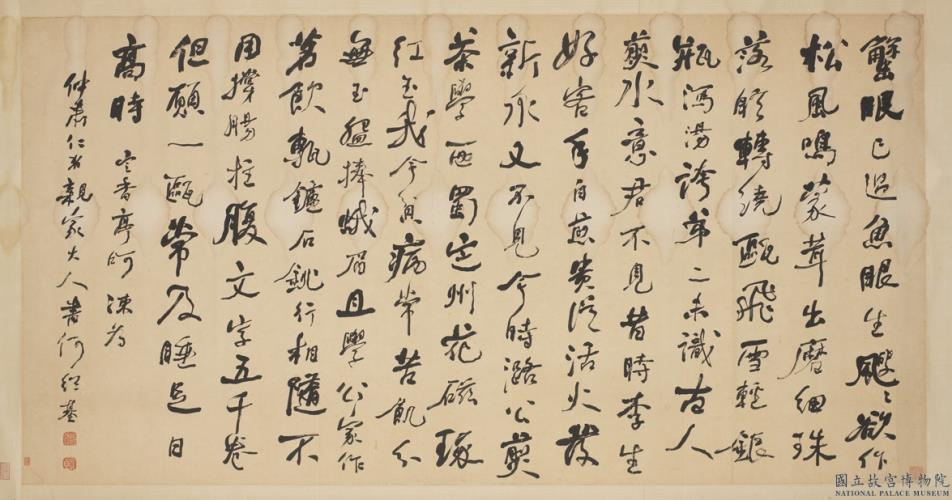 蟹眼已過魚眼生颼〻欲作
松風鳴蒙茸出磨細珠
落眩轉繞甌飛雪輕銀
瓶瀉湯誇第二未識古人
煎水意君不見昔時李生
好客手自煎貴從活火發
新泉又不見今時潞公煎
茶學西蜀定州花磁琢
紅玉我今貧病常苦飢分
無玉盌捧蛾眉且學公家作
茗飲甎鑪石銚行相隨不
用撐腸拄腹文字五千卷
但願一甌常及睡足日
高時 香亭 為
仲肅仁弟親家大人書何紹基
國立故宮博物院
NATIONAL PALACE MUSEUM